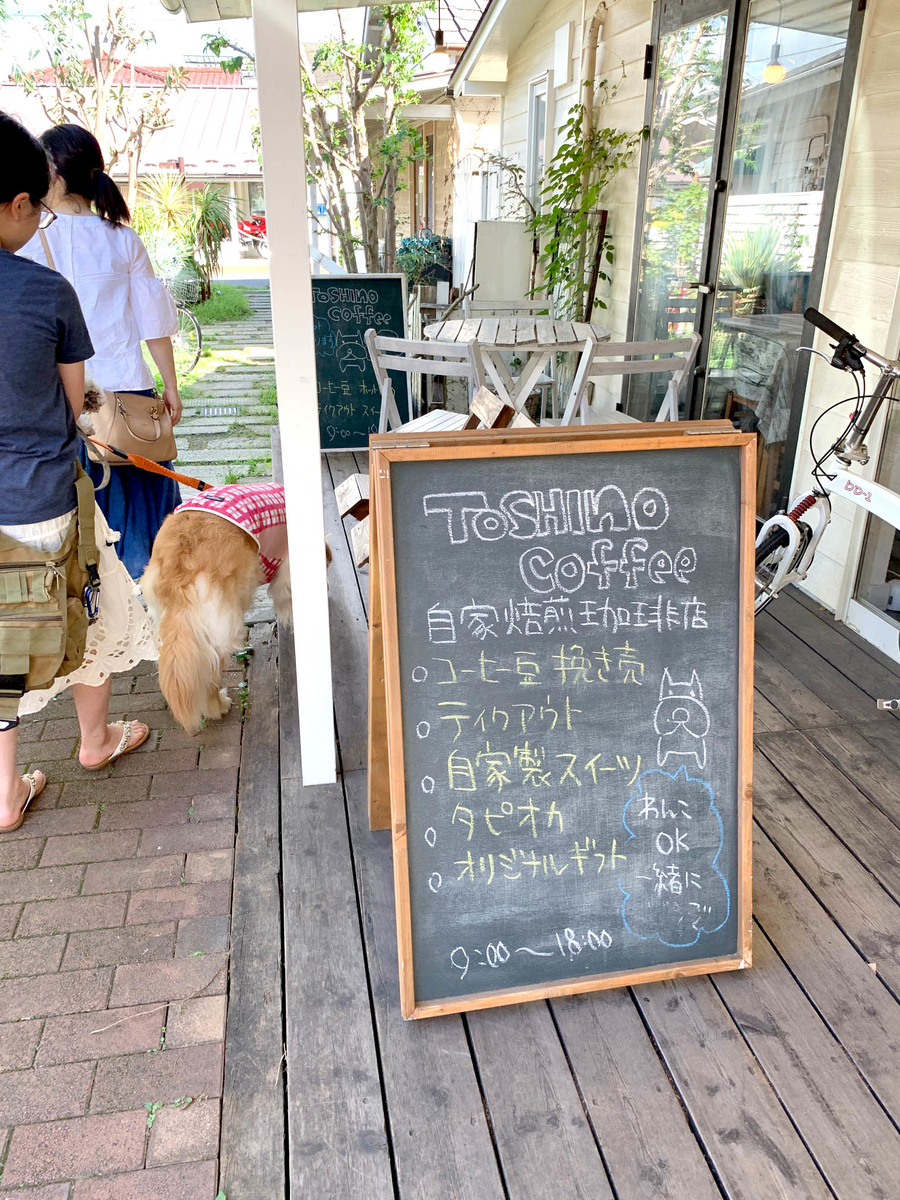 TOSHINO
Coffee
自家焙煎珈琲店
○ コーヒー豆 挽き売
○ テイクアウト
○ 自家製スイーツ
○ タピオカ
○ オリジナルギフト
わんこ
OK
一緒に
9:00〜18:00
TOSHINO
Coffee
コーヒー豆
テイクアウト
BD-1